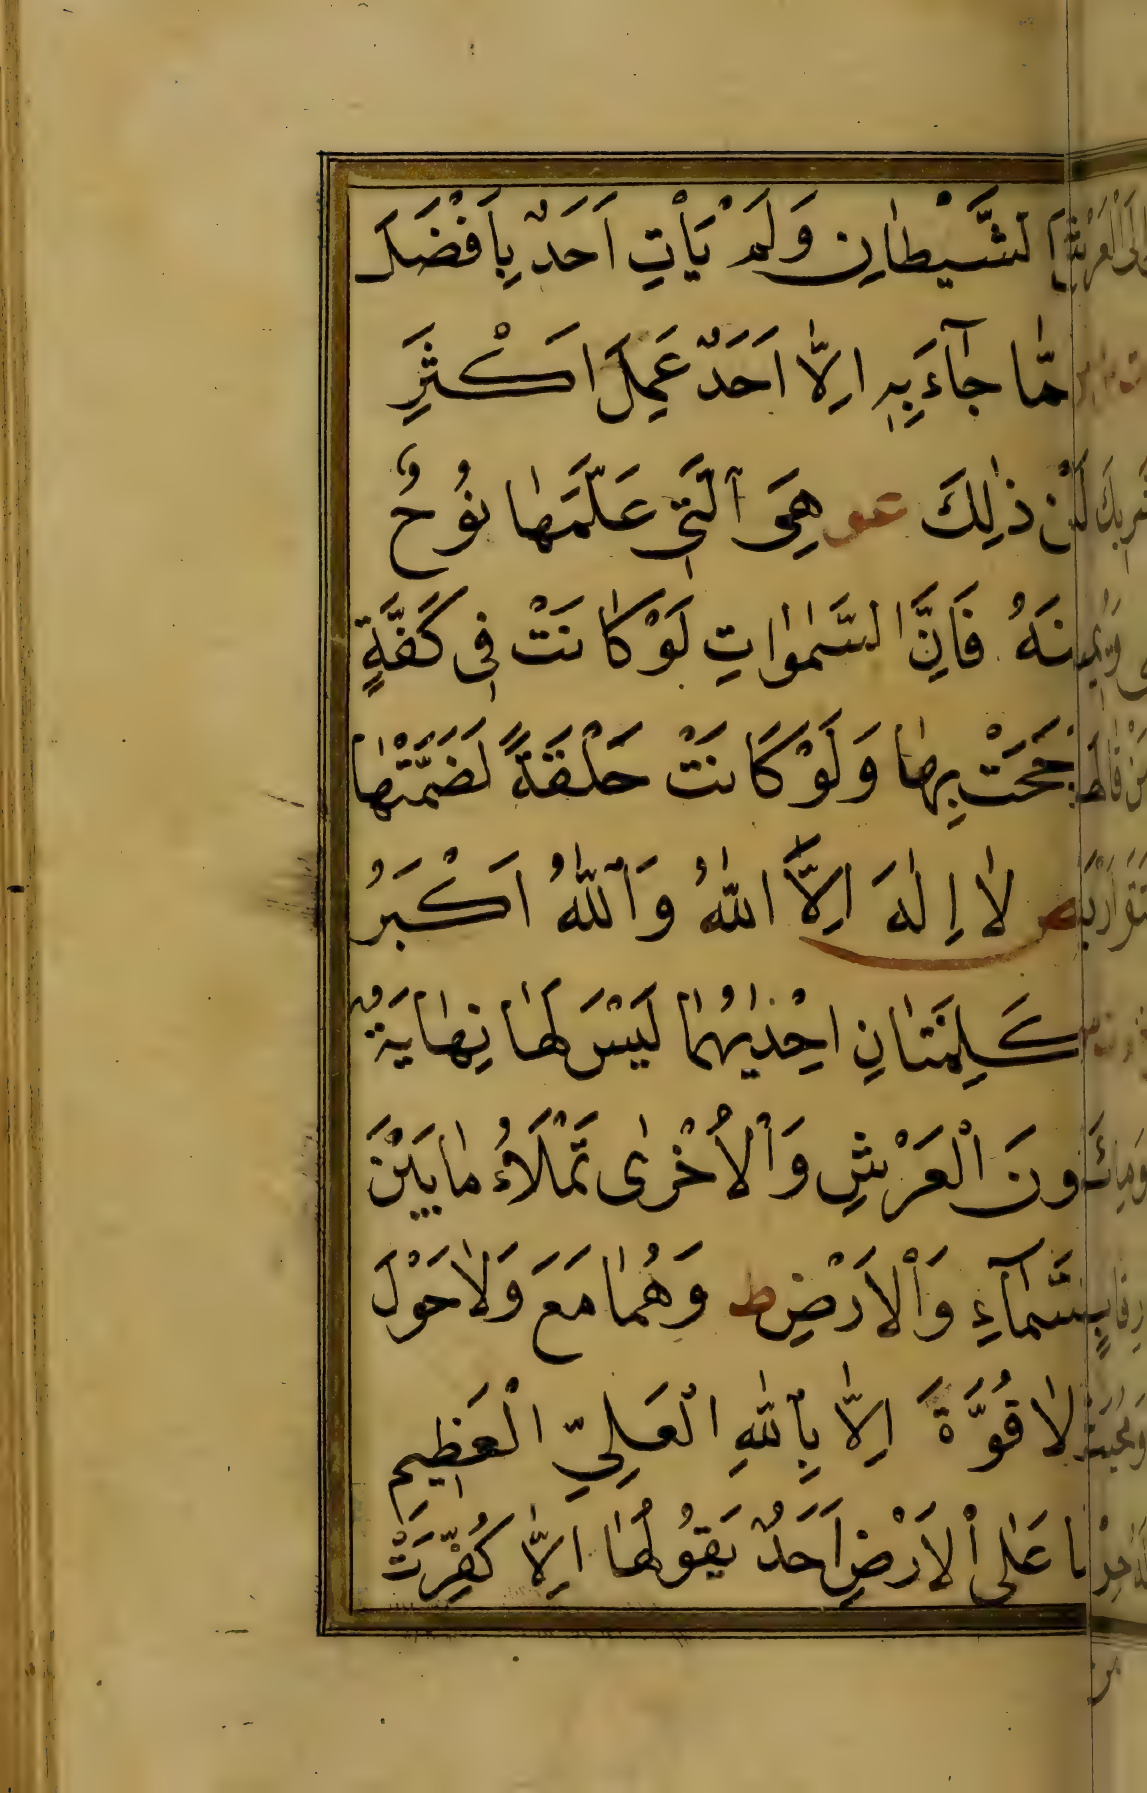 الشَّيْطانِ وَلَمْ يَأْتِ اَحَدٌ بِاَفْضَلَ
مّا جآءَ بِهِ اِلاّ اَحَدٌ عَمِلَ اَكْثَرَ
مِن ذٰلِكَ عو هِىَ الَّتى عَلَّمَها نُوحٌ
نَهُ فَاِنَّ السَّمٰواتِ لَوْ كانَتْ فى كَفَّةٍ
جَحَتْ بِها وَلَوْ كَانَتْ حَلْقَةً لَضَمَّتْها
ص لا اِلٰهَ اِلاَّ اللهُ وَاللهُ اَكْبَرُ
كَلِمَتانِ اِحْدٰيهُما لَيْسَ لَها نِهايَةٌ
ونَ الْعَرْشِ وَالْاُخْرٰى تَمْلَاُ ما بَيْنَ
السَّمآءِ وَالْاَرْضِ ط وَهُما مَعَ وَلا حَوْلَ
لا قُوَّةَ اِلاّ بِاللهِ الْعَلِىِّ الْعَظِيمِ
ا عَلَى الْاَرْضِ اَحَدٌ يَقُولُها اِلاّ كُفِّرَتْ